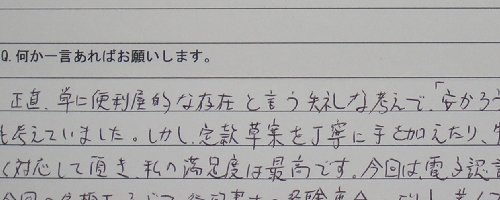 Q.何か一言あればお願いします。
正直、単に便利屋的な存在と言う失礼な考えで、「安かろう
も考えていました。しかし、定款草案を丁寧に手を加えたり、
く対応して頂き、私の満足度は最高です。今回は、電子認